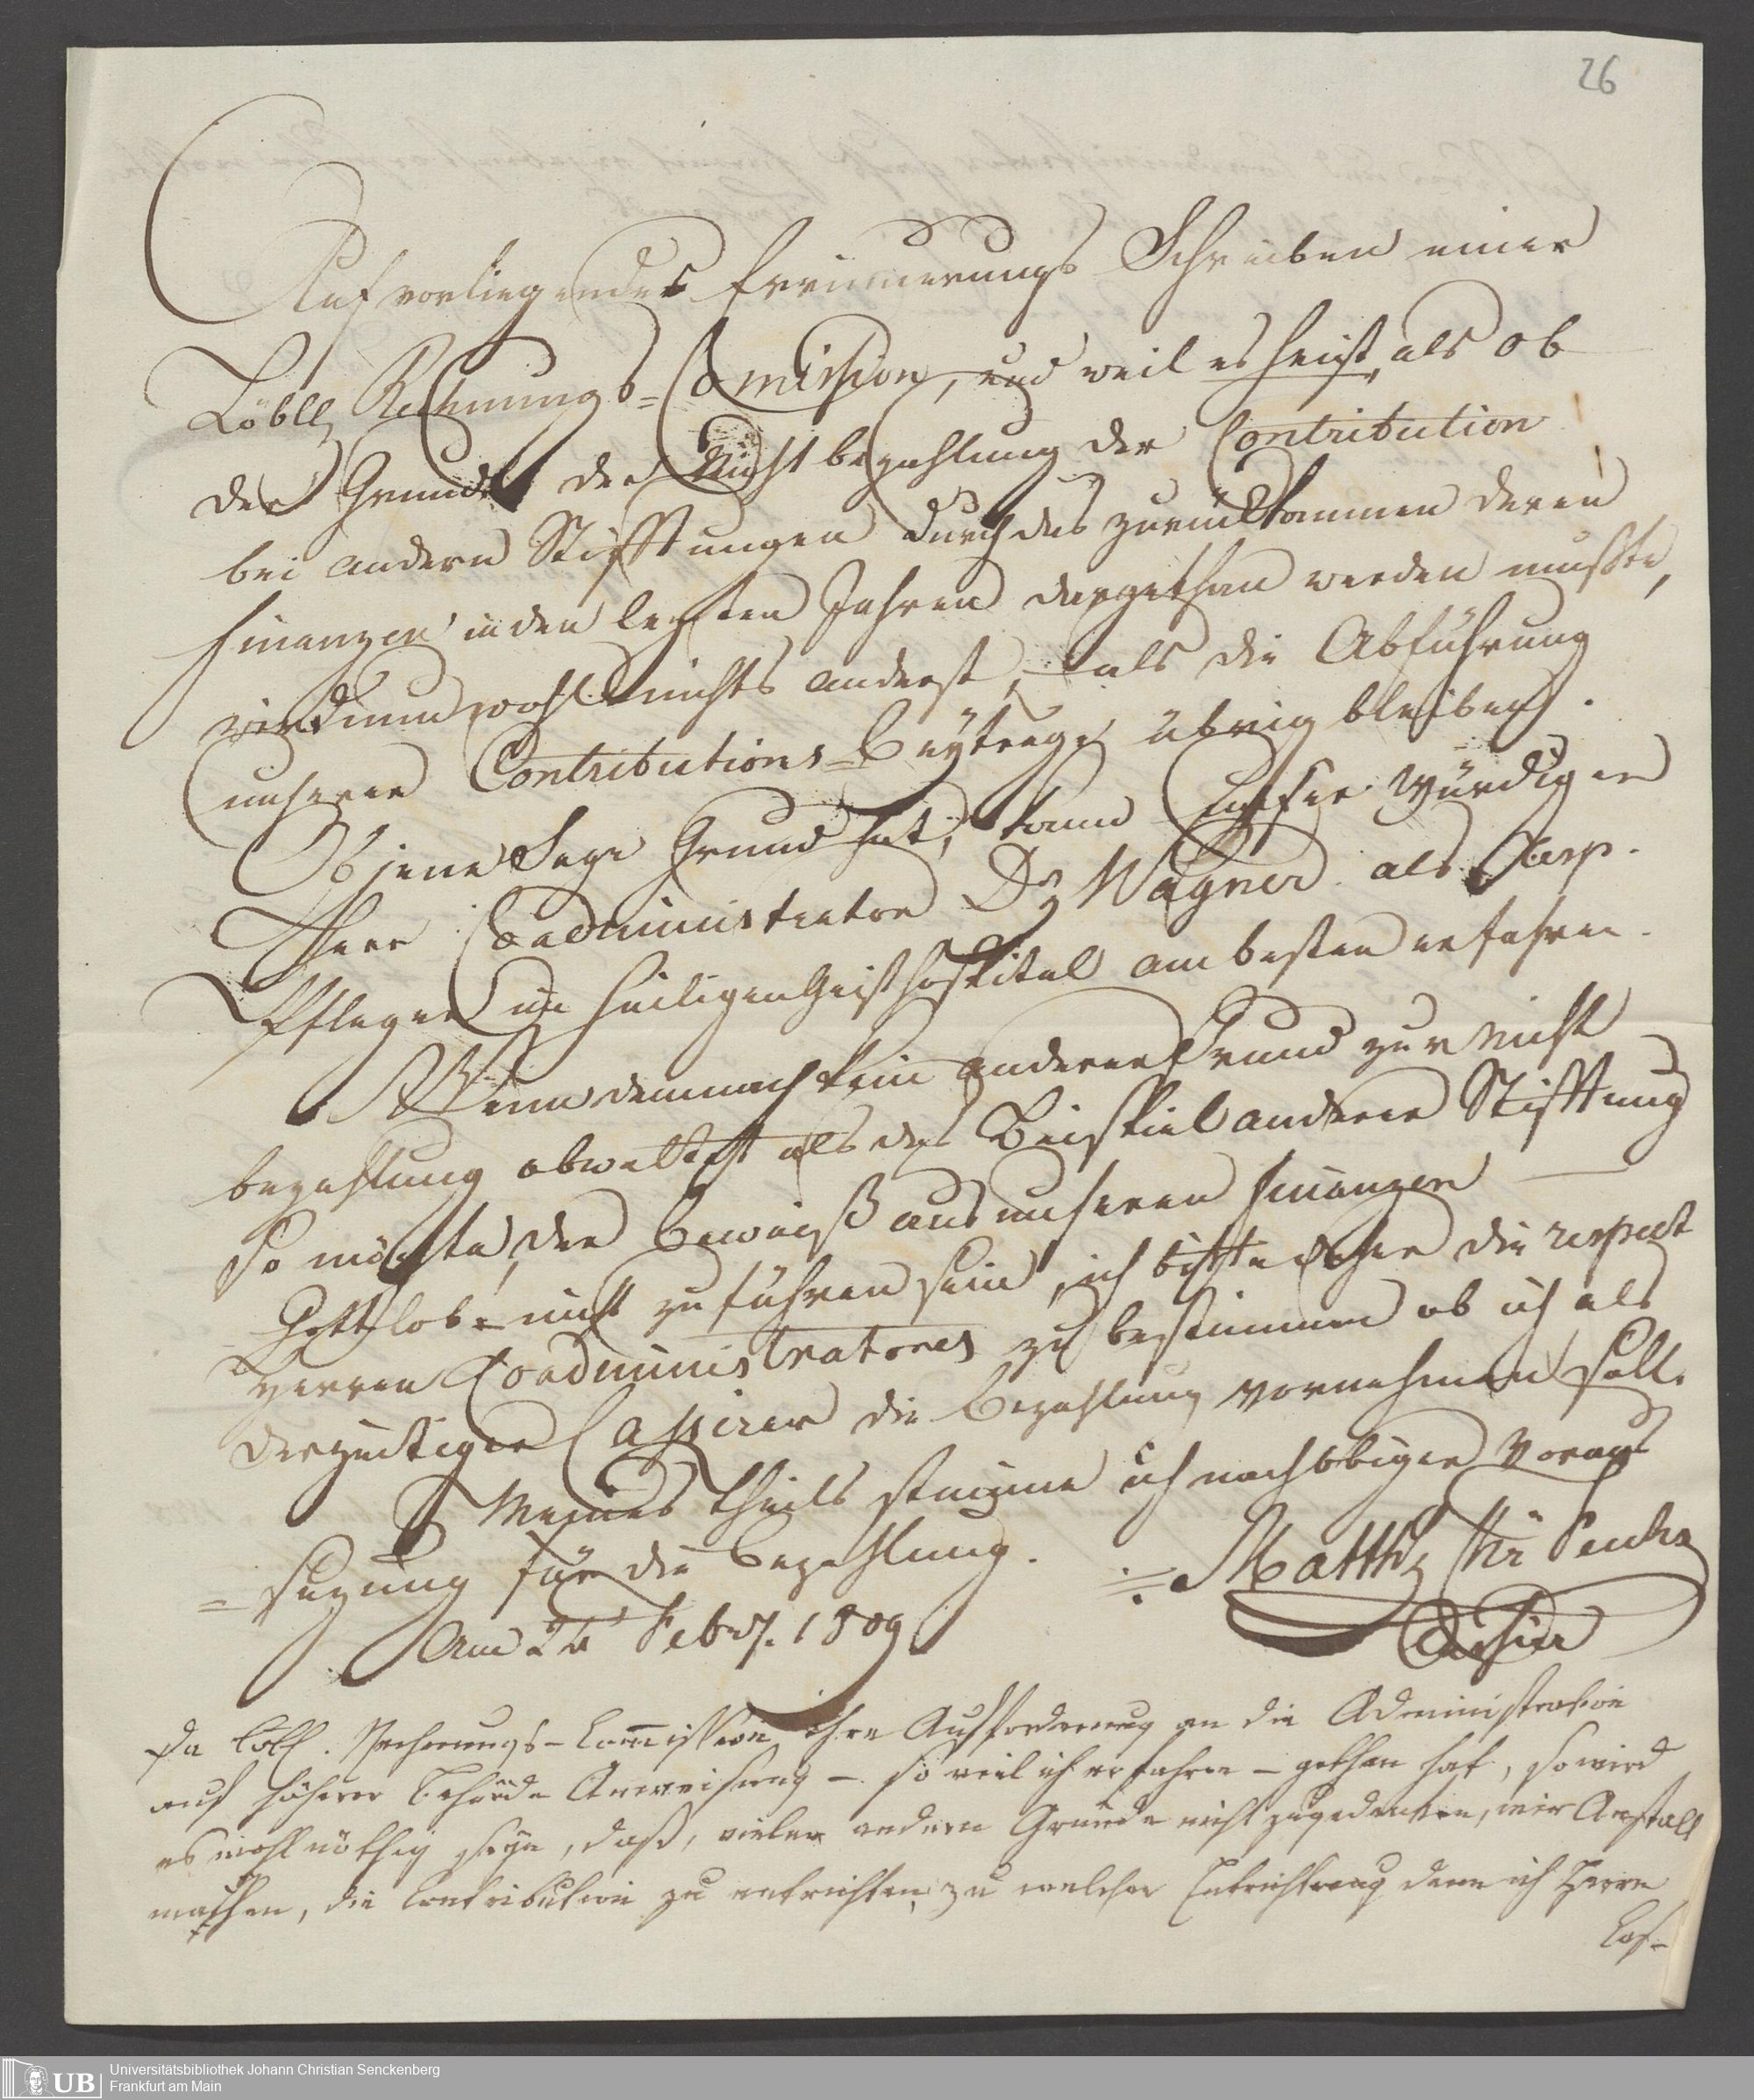 26
Auf vorliegendes Erinnerungs Schreiben einer
Löbl. Rechnungs=Comission, und weil es heist, als ob
der Grund der Nicht bezahlung der Contribution
bei andern Stifftungen durch das zurückkommen deren
Finanzen in den lezten Jahren dargethan werden mußte,
wird nun wohl nichts anderst, als die Abführung
unserer Contributions=Beyträge übrig bleiben.
Ob jene Sage Grund hat, kann unser würdiger
Herr Coadministrator Dr. Wagner als
Pfleger im Heiligen Geist Hospital am besten erfahren.
Wenn demnach kein anderer Grund zur Nicht
bezahlung obwaltet als das Beispiel anderer Stifftung
so möchte, der Beweiß aus unseren Finanzen
Gott lob - nicht zu führen sein, ich bitte daher die respect
Herren Coadministratores zu bestimmen ob ich als
derzeitiger Cassirer die Bezahlung vornehmen soll.
Meines theils stimme ich nach obiger Voraus
=sezung für die Bezahlung.
Am 24 Febr. 1809
Matth
Da löbl. Rechnungs-Commission ihre Aufforderung an die Administration
auf höherer Behörde Anweisung - so viel ich erfahren - gethan hat, so wird
es wohl nöthig seyn, daß, vieler andern Gründe nicht zu gedenken, wir Anstalt
machen, die Contribution zu entrichten, zu welcher Entrichtung denn ich Herrn